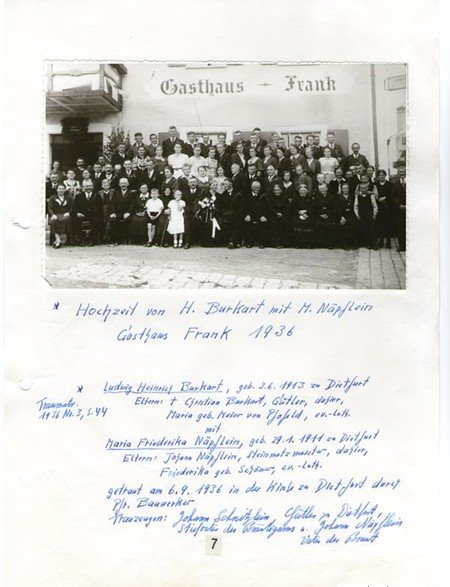 Gasthaus - Frank
* Hochzeit von H. Burkart mit M. Näpflein
Gasthaus Frank 1936
* Ludwig Heinrich Burkart, geb. 3.6.1913 zu Dietfurt
Traumatr.
1936 Nr. 3, S. 44
Eltern: + Christian Burkart, Gütler, dahier,
Maria geb. Meier von Pfofeld, ev.-luth.
mit
Maria Friederika Näpflein, geb. 29.1.1911 zu Dietfurt
Eltern: Johann Näpflein, Steinmetzmeister, dahier,
Friederika geb. Schöner, ev.-luth.
getraut am 6.9.1936 in der Kirche zu Dietfurt durch
Pfr. Bauwerker
Trauzeugen: Johann Schnitzlein, Gütler zu Dietfurt,
Stiefvater des Bräutigams u. Johann Näpflein
Vater der Braut
7